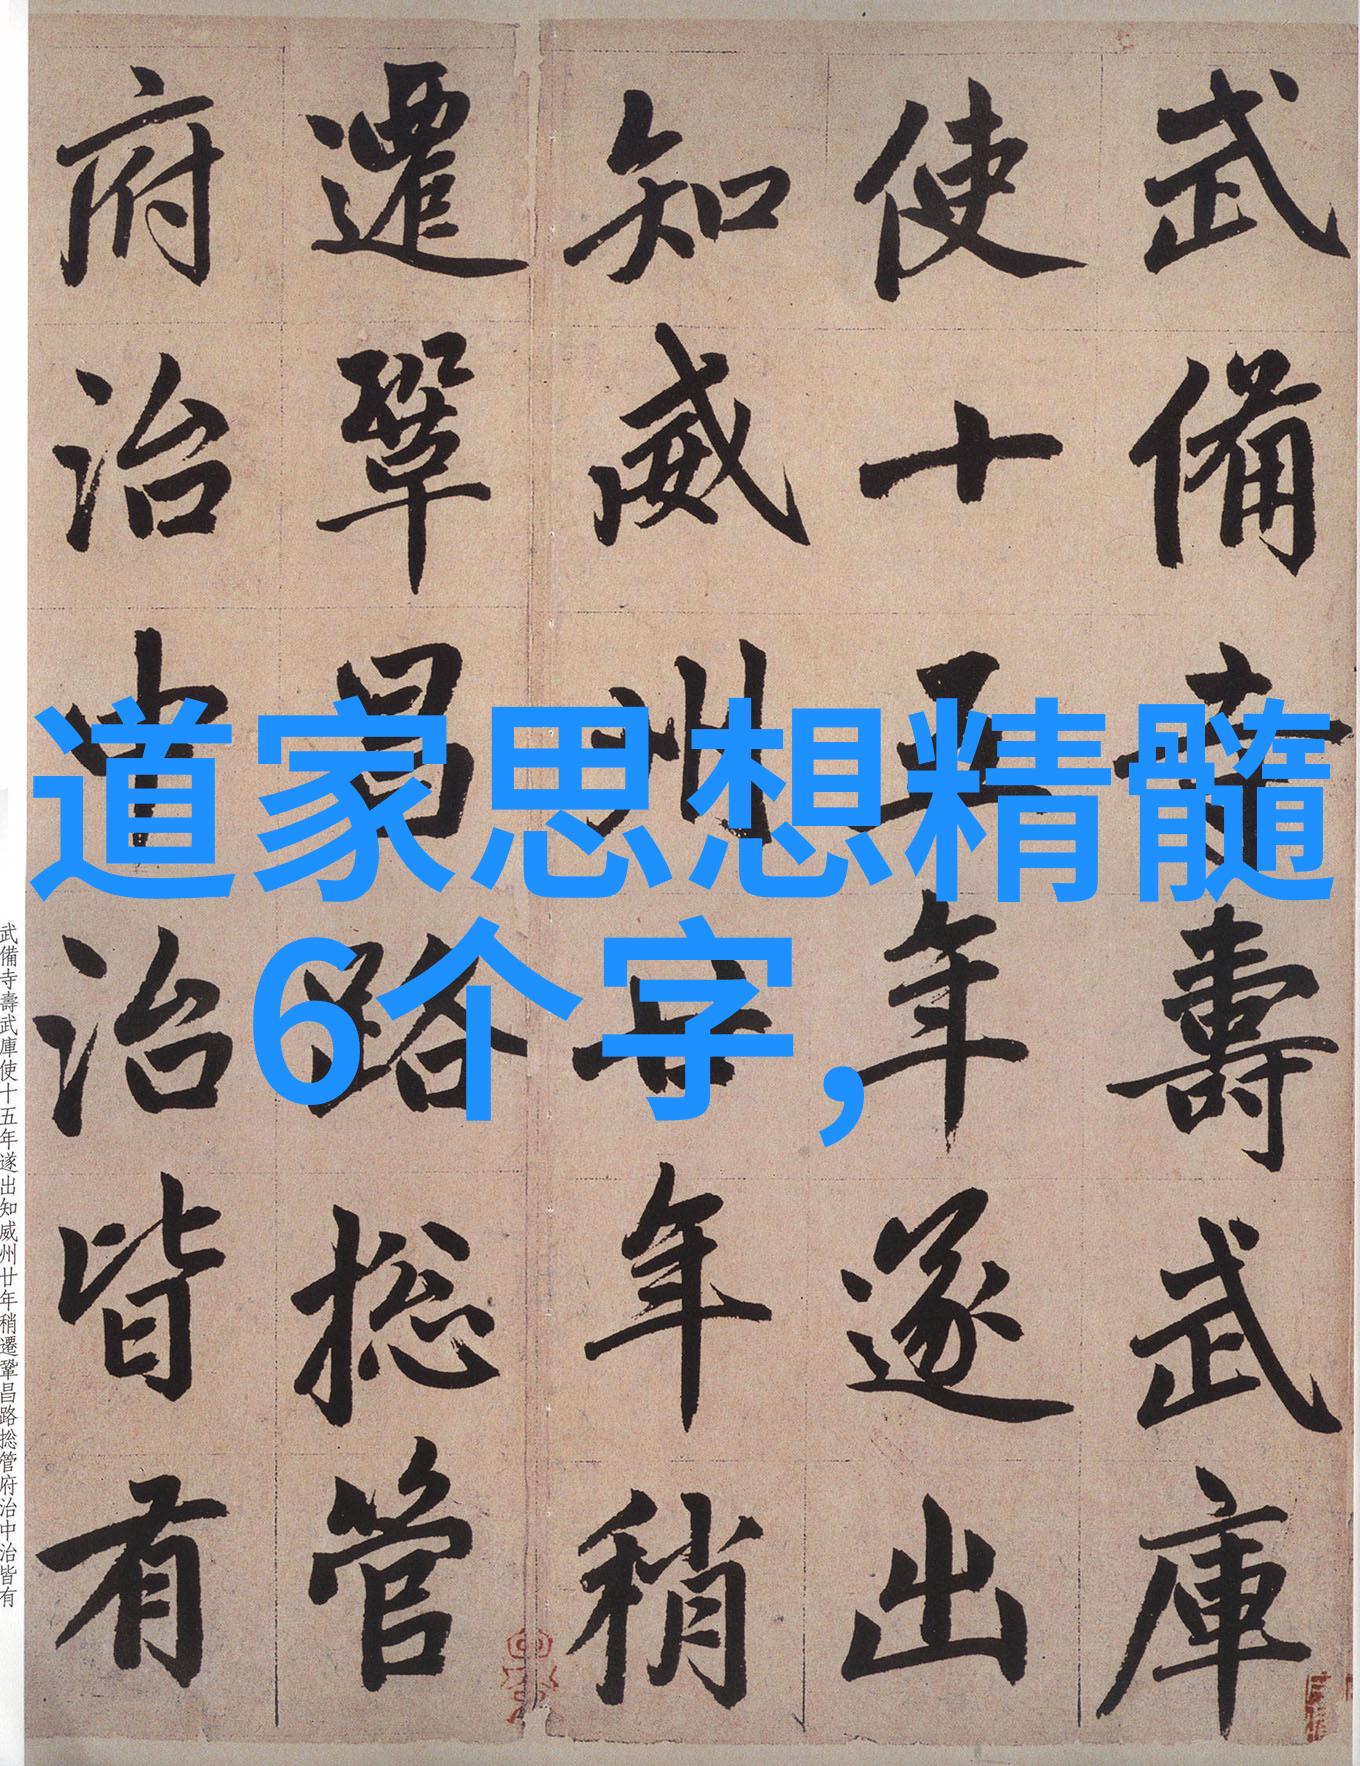 道家思想精髓
6个字，
武備寺壽武庫
使十五年遂出
知威州廿年稍
遷鞏昌路捴管
府治中治皆有
武備寺壽武庫使十五年遂出知威州廿年稍遷鞏昌路捴管府治中治皆有